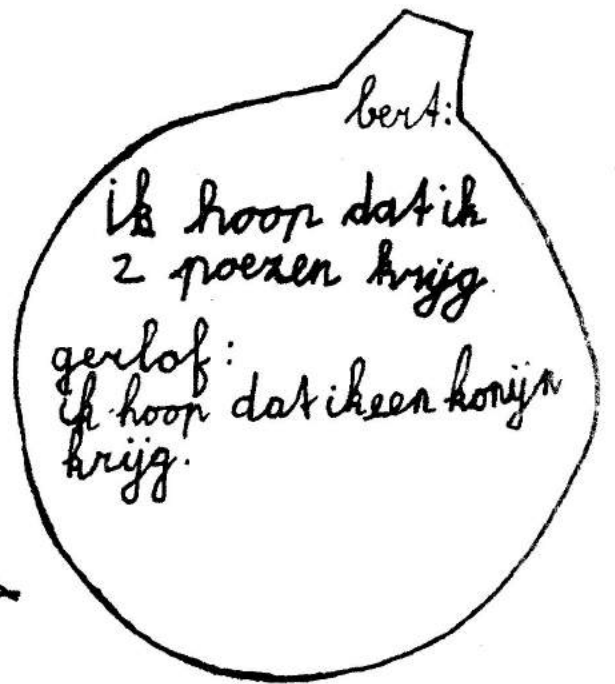 bert:
ik hoop dat ik
2 poezen krijg.
gerlof:
ik hoop dat ik een konijn
krijg.